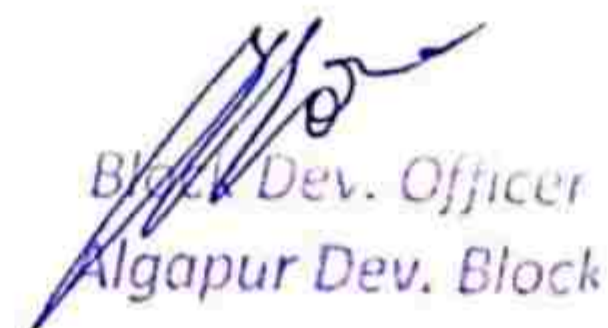 Block Dev. Officer
Algapur Dev. Block